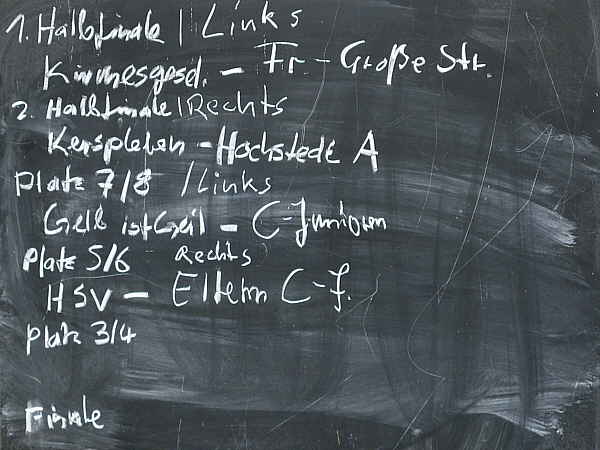 1. Halbfinale / Links
Kirmesgesel. - Fr. - Große Str.
2. Halbfinale / Rechts
Kerspleben - Hochstedt A
Platz 7/8 / Links
Gelb ist Geil - C-Junioren
Platz 5/6 Rechts
HSV - Eltern C-J.
Platz 3/4
Finale